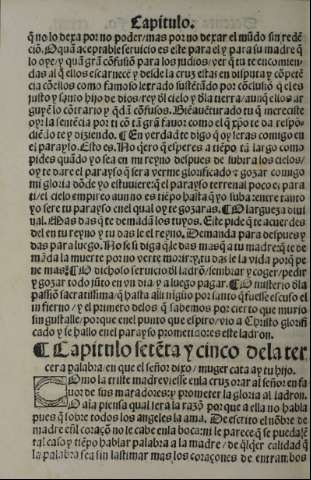 Capitulo.
q̃ no lo dexa por no poder/mas por no dexar el mũdo sin redẽ
ciõ. O quã aceptable seruicio es este para el y para su madre q̃
lo oye/y quã grã cõfusiõ para los judios/ver q̃ tu te encomien
das al q̃ ellos escarnecẽ y desde la cruz estas en disputa y cõpetẽ
cia cõ ellos como famoso letrado
justo y santo hijo de dios/rey ðl cielo y ðla tierra/aunq̃ ellos ar
guyẽ lo cõtrario y q̃dã cõfusos. Biẽauẽturado tu q̃ mereciste
oyr la sentẽcia por ti cõ tã grã fauor como el q̃ xp̃o te da respo-
diẽdo te y diziendo. ¶ En verdad te digo q̃ oy seras comigo en
el parayso. Esto es. No q̃ero q̃ esperes a tiẽpo tã largo como
pides quãdo yo sea en mi reyno despues de subir a los cielos/
oy te dare el parayso q̃ sera verme glorificado y gozar comigo
mi gloria dõde yo estuuiere: q̃ el parayso terrenal poco es para
ti/el cielo empireo aun no es tiẽpo hasta q̃ yo suba: enere tanto
yo sere tu parayso enel qual oy te gozaras. ¶ O largueza diui
nal. Mas das q̃ te demãda los tuyos. Este pide q̃ te acuerdes
del en tu reyno y tu das le el reyno. Demanda para despues y
das para luego. No se si diga q̃ le das mas q̃ a tu madre: q̃ te de
mãda la muerte por no verte morir: y tu das le la vida porq̃ pe
ne mas. ¶ O dichoso seruicio ðl ladrõ/sembrar y coger/pedir
y gozar todo jũto en vn dia y a luego pagar. ¶ O misterio ðla
passiõ sacratissima/q̃ hasta alli nigũo por santo q̃ fuesse escuso el
infierno/y el primero delos q̃ sabemos por cierto que murio
sin gustalle/porque enel punto que espiro/vio a Christo glorifi
cado y se hallo enel parayso prometidores este ladron.
¶ Capitulo setẽta y cinco dela ter
cera palabra en que el señor dixo/muger cata ay tu hijo.
Omo la triste madre viesse enla cruz orar al señor en fa
uor de sus matadores: y prometer la gloria al ladron.
Para piensa qual sera la razõ porque a ella no habla
pues q̃ sobre todos los angeles la ama. De escrito el nõbre de
madre enl coraçõ no le cabe enla boca: ni le parece q̃ se pueda ẽ
tal caso y tiẽpo hablar palabra a la madre/de q̃lq̃er calidad q̃
la palabra sea sin lastimar mas los coraçones de entrambos